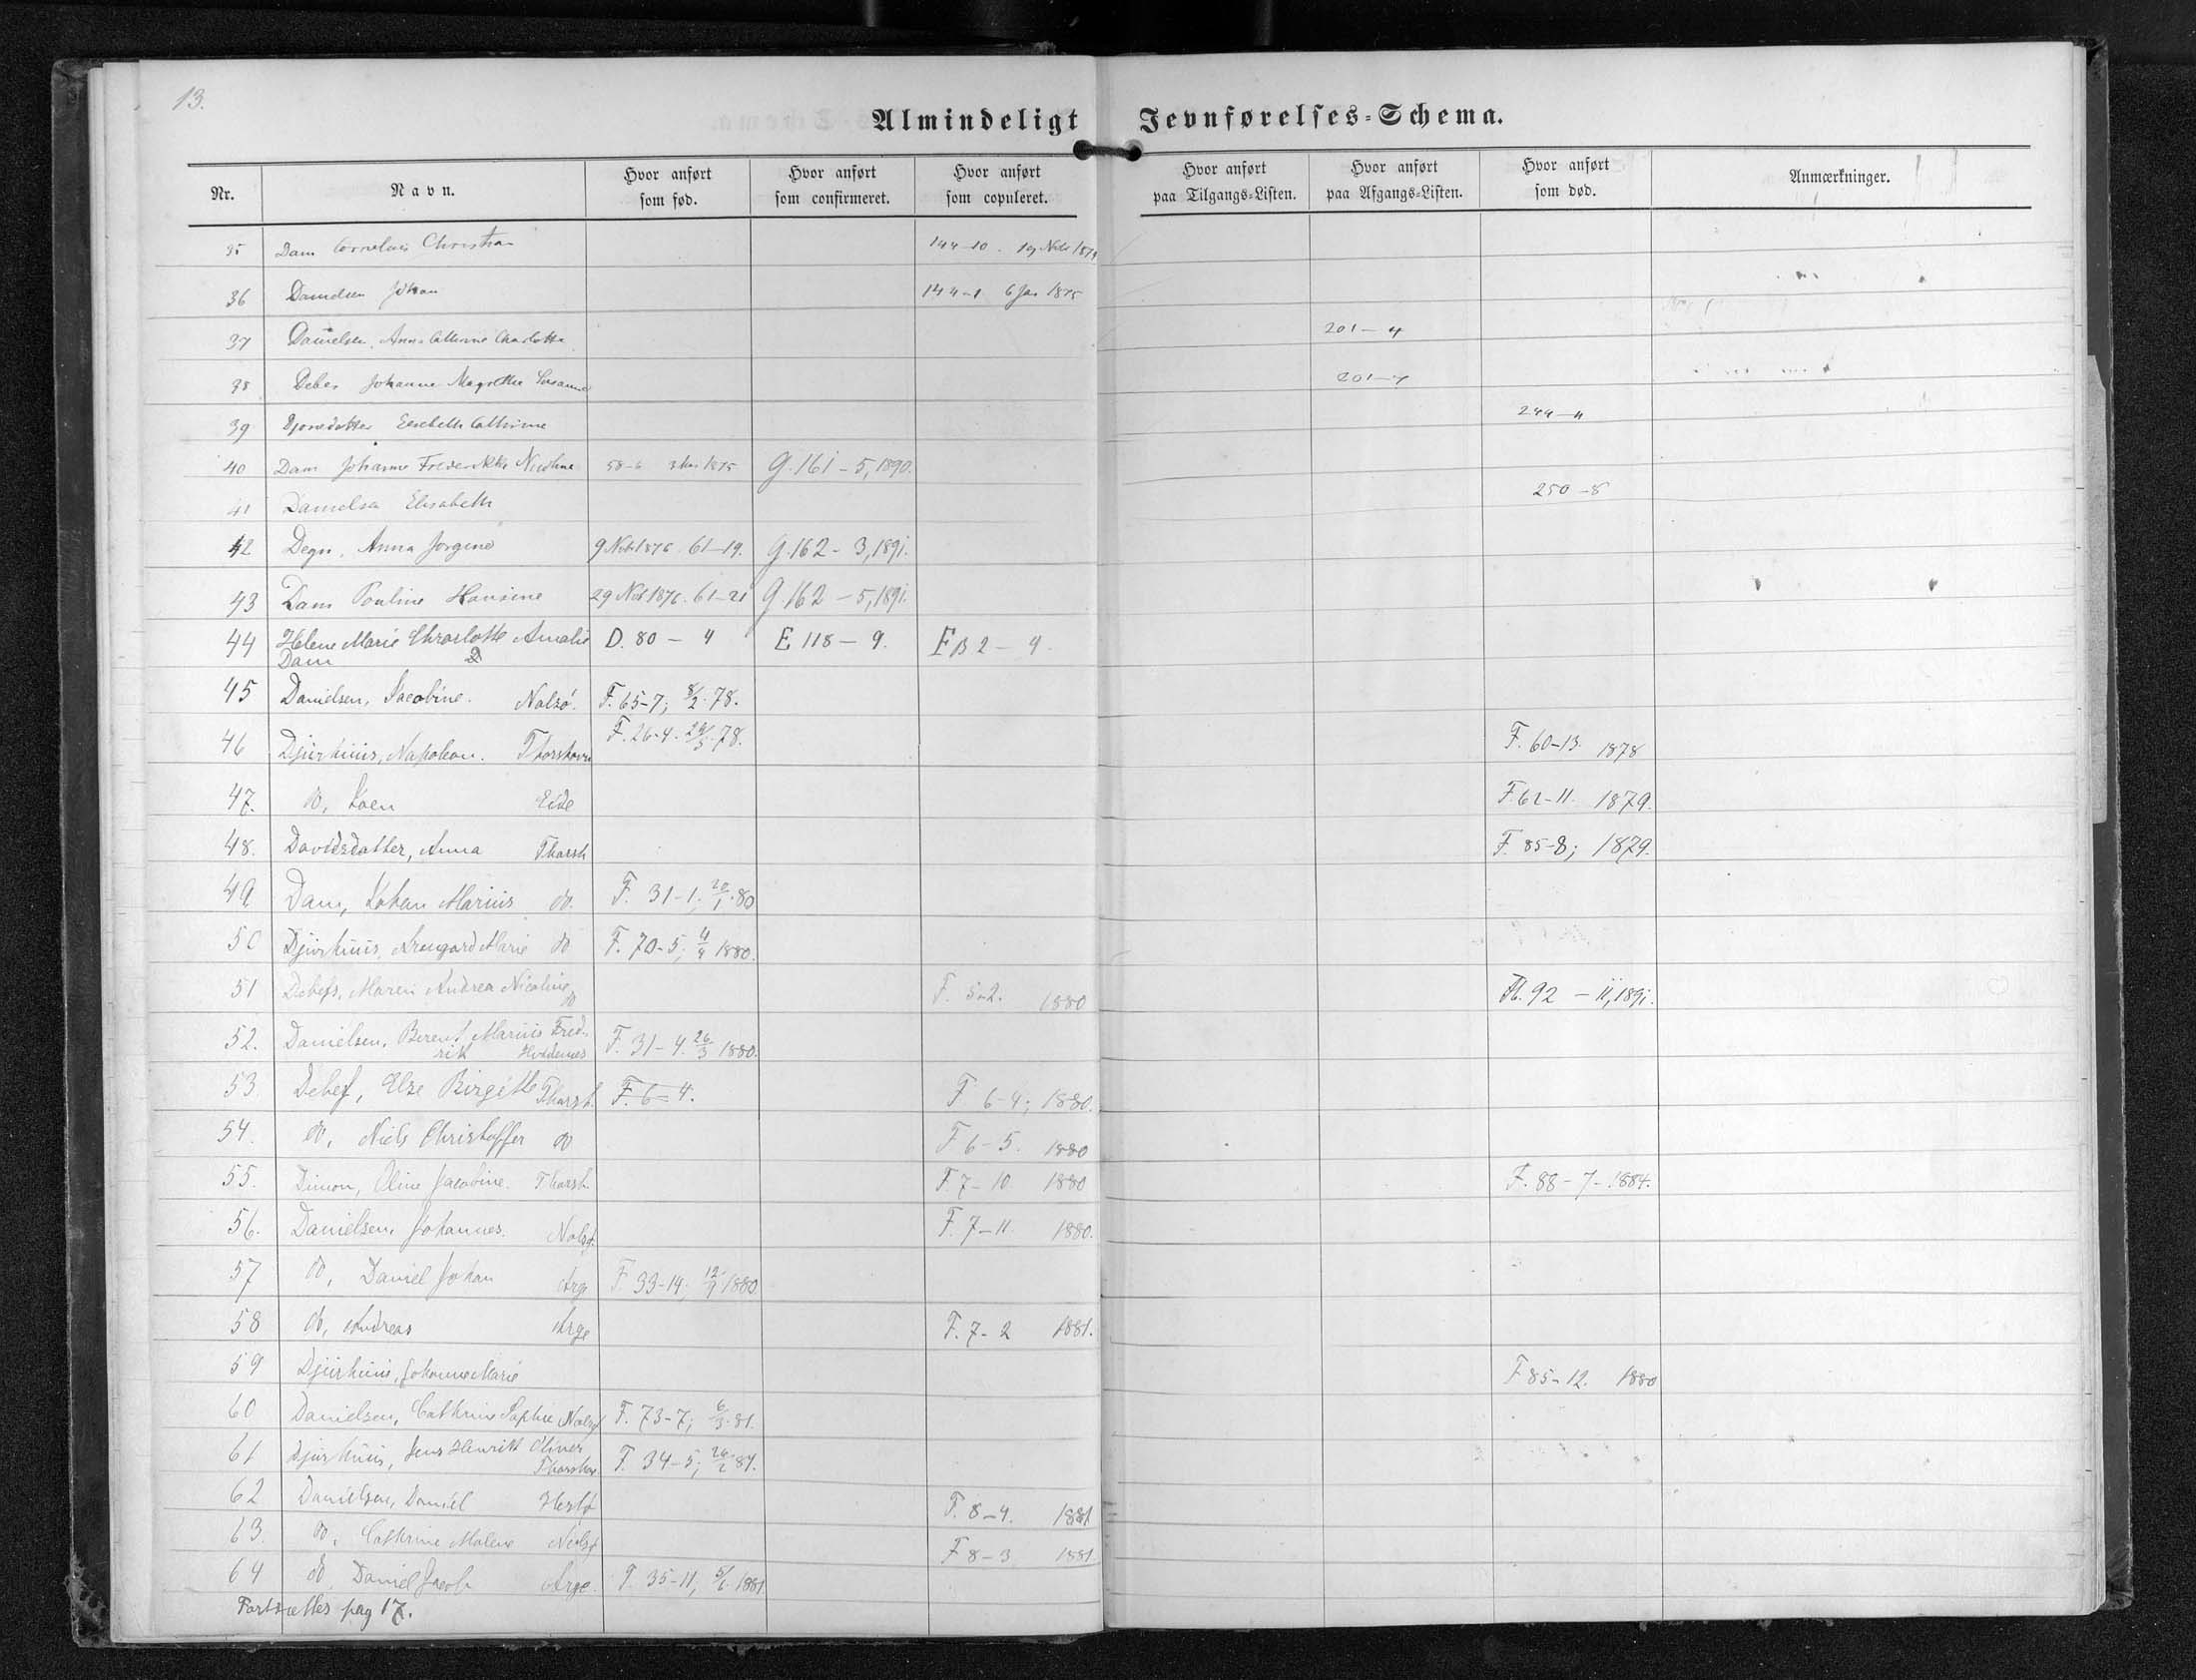 13.
Almindeligt Jevnførelses-Schema.
Nr. Navn. Hvor anført som fød. Hvor anført som confirmeret. Hvor anført som copuleret. Hvor anført paa Tilgangs-Listen. Hvor anført paa Afgangs-Listen. Hvor anført som død. Anmærkninger.
35 Dam Cornelius Christian 144-10. 19 Nov 1874
36 Danielsen Johan 144-1 6 Jan 1875
37 Danielsen, Anna Cathrine Charlotte 201-4
38 Debes Johanne Magrethe Susanne 201-7
39 Djonedatter Elisabeth Cathrine 244-11
40 Dam Johanne Frederikke Nicoline 58-6 1875 G.161-5,1890.
41 Danielsen Elisabeth 250-8
42 Degn, Anna Jorgine 9 Nov 1876. 61-19. G.162-3,1891.
43 Dam Pouline Hansine 29 Nov 1876. 61-21 G.162-5,1891.
44 Helene Marie Charlotte Amalie D. 80 - 4 E 118 - 9. F B 2 - 4.
Dam
45 Danielsen, Jacobine. Nolsö. F. 65-7; 8/2.78.
46 Djurhuus, Napoleon. Thorshavn F. 26-4. 78. F. 60-13. 1878
47. do, Joen Eide F.62-11. 1879.
48. Davidsdatter, Anna Thorsh F. 85-8; 1879.
49 Dam, Johan Marius do. F. 31-1. 20/1.80
50 Djurhuus, Armgard Marie do F. 70-5; 4/4 1880.
51 Debefs, Maren Andrea Nicoline F. 5-2. 1880 92 - 11,1891.
do
52. Danielsen, Berent Marius Fred-
rik Hvidenes F. 31-4. 26/3 1880.
53 Debef, Else Birgitte Thorsh. F. 6-4. F 6-4; 1880.
54. do, Niels Christoffer do F 6-5. 1880
55. Dimon, Oline Jacobine. Thorsh. F 7-10 1880 F. 88-7-1884.
56. Danielsen, Johannes. Nolsø. F. 7-11 1880.
57 do, Daniel Johan Arge F 33-14; 12/9 1880
58 do, Andreas Arge F. 7-2 1881.
59 Djurhuus, Johanne Marie F 85-12. 1880
60 Danielsen, Cathrine Sophie Nolsø F. 73-7; 6/3.81.
61 Djurhuus, Jens Henrik Oliver
Thorshav. F. 34-5; 26/2 81.
62 Danielsen, Daniel Hestø F. 8-4. 1881
63. do, Cathrine Malene Nolsø F 8-3 1881.
64 do, Daniel Jacob Arge. F. 35-11, 5/6 1881
Fortsættes pag 17.